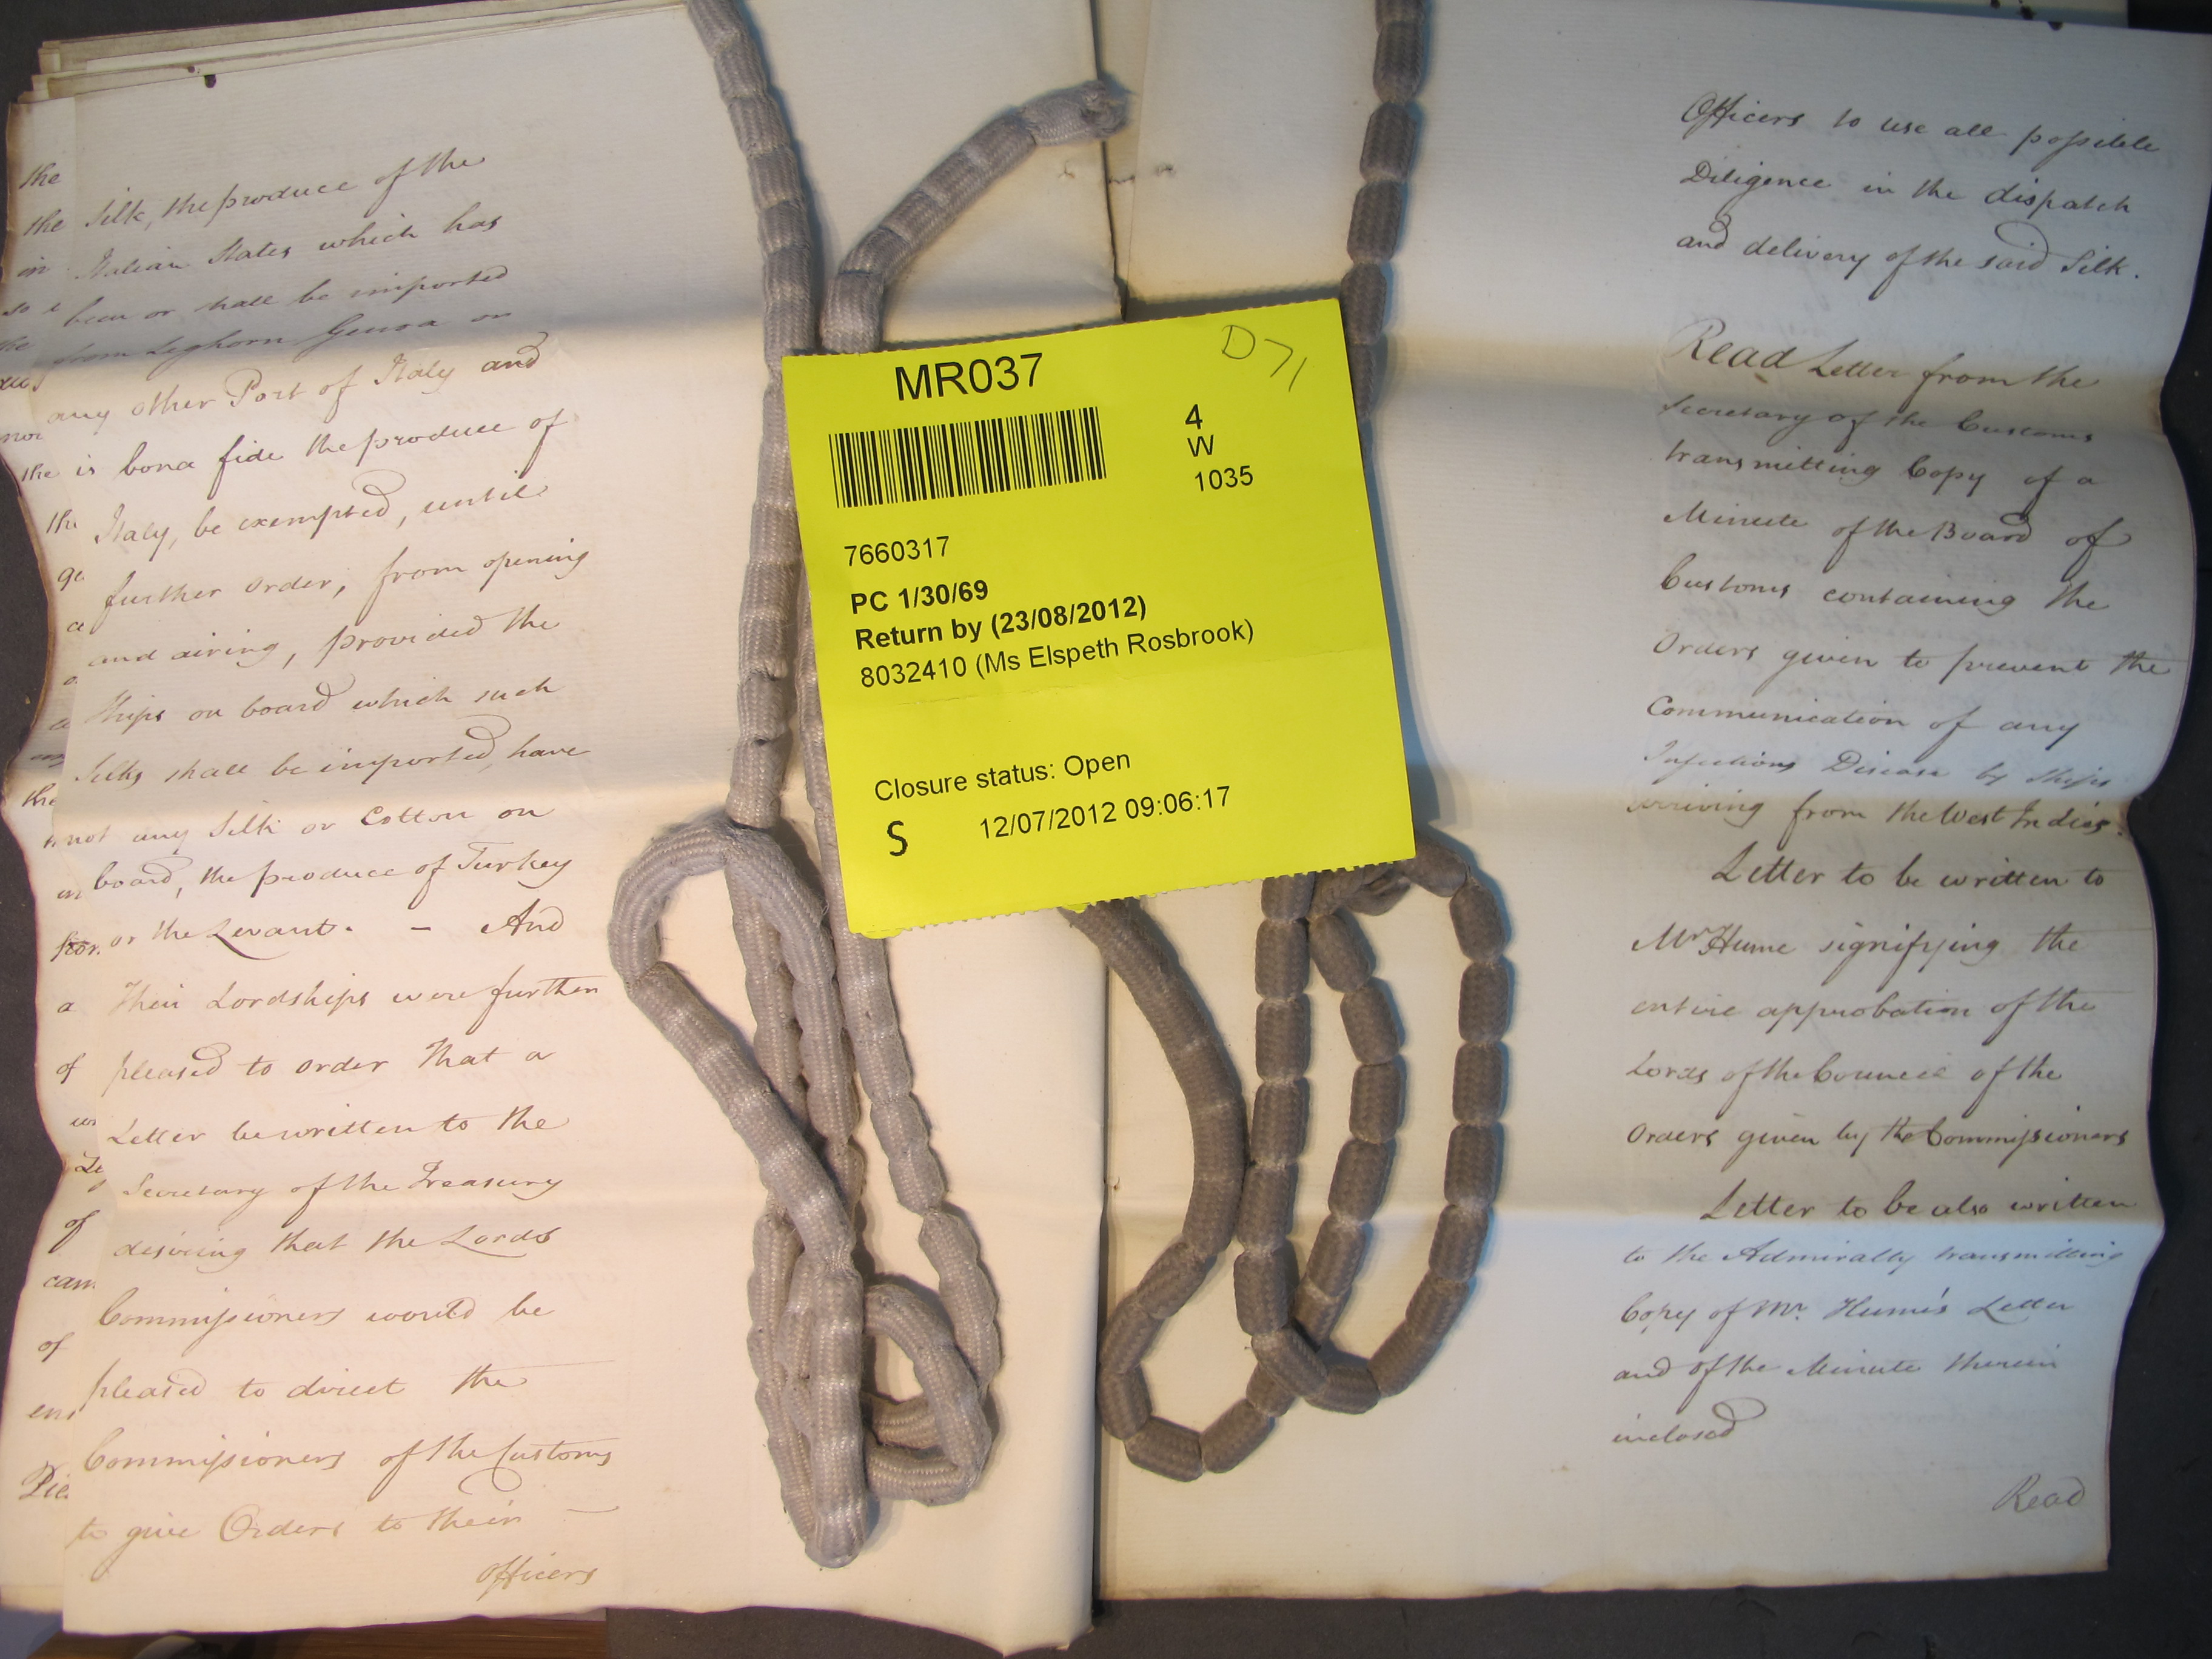 the
the
in
so
the
nor
the
the
a
the
in
for
a
of
of
cam
of
ens
Silk, the produce of the
Italian States which has
been or shall be imported
from Leghorn Genoa or
any other Port of Italy and
is bona fide the produce of
Italy, be exempted, until
further order, from opening
and airing, provided the
Ships on board which such
Silks shall be imported, have
not any Silk or Cotton on
board, the produce of Turkey
or the Levant. - And
Their Lordships were further
pleased to order that a
Letter be written to the
Secretary of the Treasury
desiring that the Lords
Commissioners would be
pleased to direct the
Commissioners of the Customs
to give Orders to their
officers
MR037
D71
4
W
1035
7660317
PC 1/30/69
Return by (23/08/2012)
8032410 (Ms Elspeth Rosbrook)
Closure status: Open
S 12/07/2012 09:06:17
Officers to use all possible
Diligence in the dispatch
and delivery of the said Silk.
Read Letter from the
Secretary of the Customs
transmitting Copy of a
Minute of the Board of
Customs containing the
Orders given to prevent the
Communication of any
Infectious Disease by Ships
arriving from the West Indies.
Letter to be written to
Mr Hume signifying the
entire approbation of the
Lords of the Council of the
Orders given by the Commissioners
Letter to be also written
to the Admiralty transmitting
Copy of Mr. Hume's Letter
and of the Minute therein
inclosed
Read